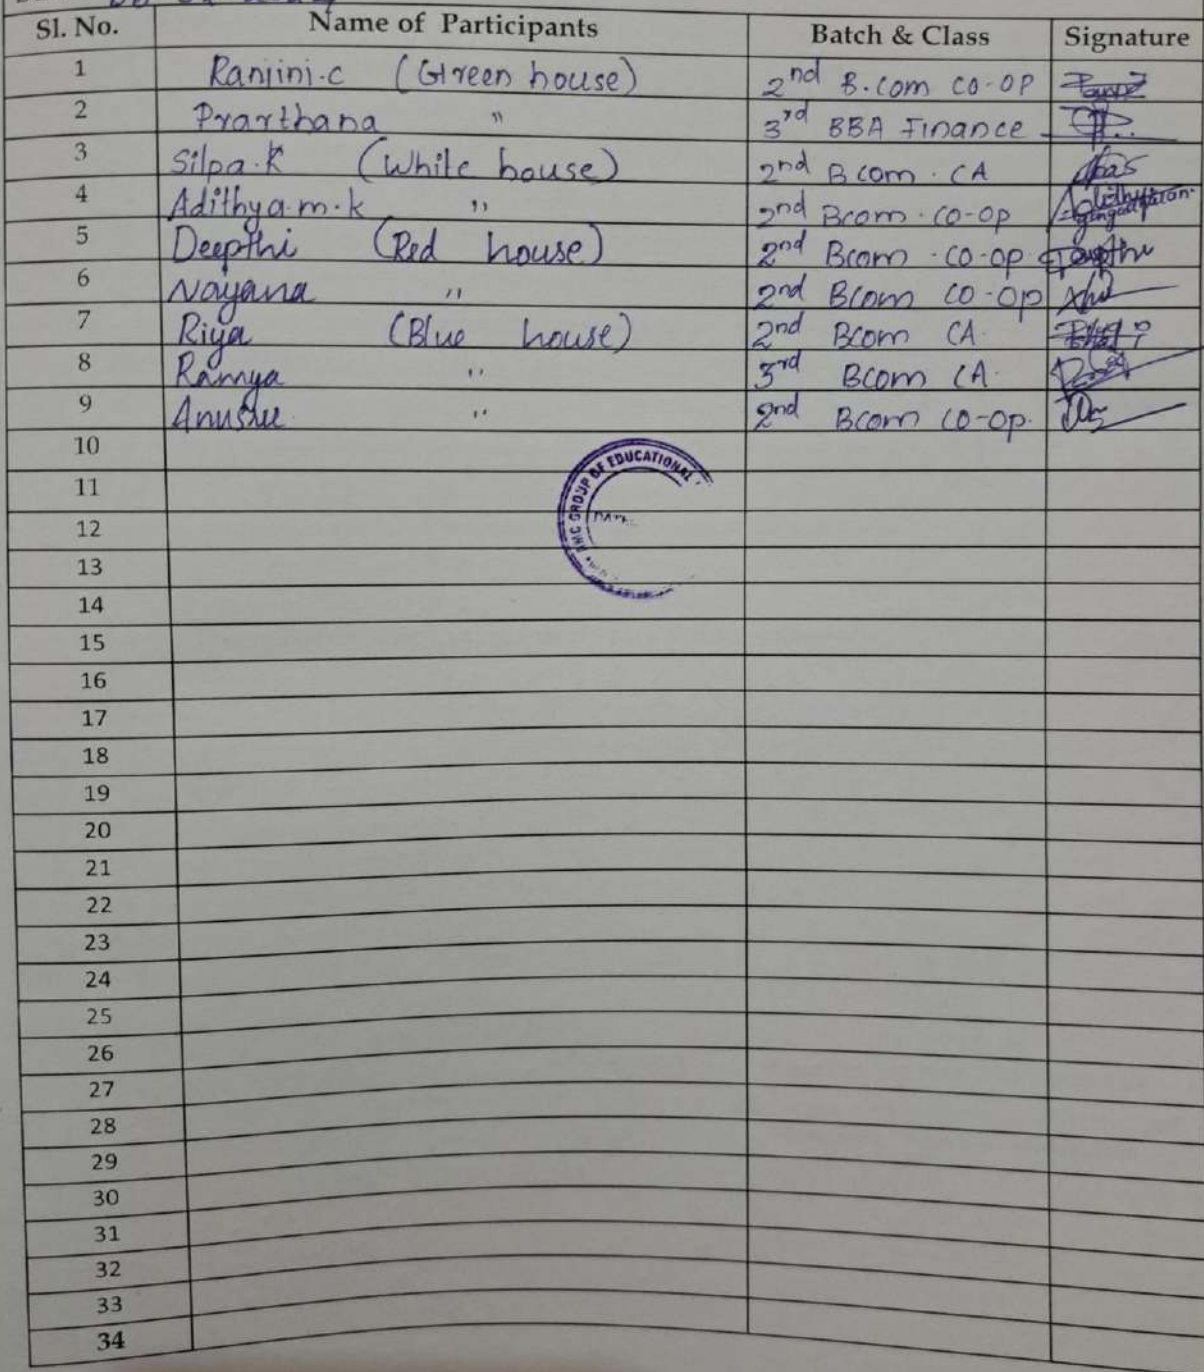 Sl. No. Name of Participants Batch & Class Signature
1 Ranjini.c (Green house) 2nd B.com co-op
2 Prarthana " 3rd BBA Finance
3 Silpa.K (White house) 2nd Bcom. CA
4 Adithya.m.k " 2nd Bcom. co-op
5 Deepthi (Red house) 2nd Bcom. co-op Deepthi
6 Nayana " 2nd Bcom co-op
7 Riya (Blue house) 2nd Bcom CA.
8 Ramya " 3rd Bcom CA.
9 Anusree " 2nd Bcom co-op.
10
OF EDUCATIONAL
11
GROUP
12
13
14
15
16
17
18
19
20
21
22
23
24
25
26
27
28
29
30
31
32
33
34